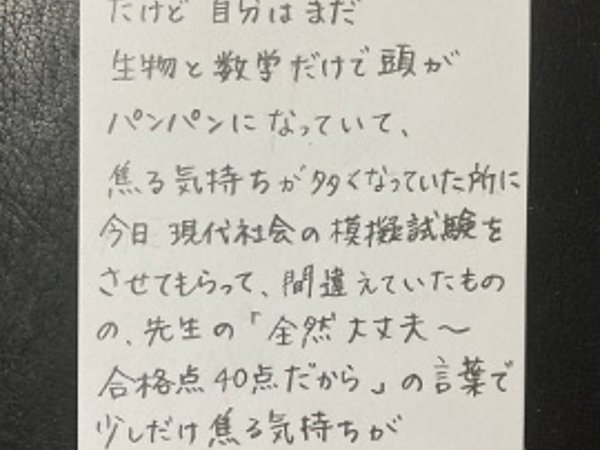 だけど 自分はまだ
生物と数学だけで頭が
パンパンになっていて、
焦る気持ちが多くなっていた所に
今日 現代社会の模擬試験を
させてもらって、間違えていたもの
の、先生の「全然大丈夫〜
合格点40点だから」の言葉で
少しだけ焦る気持ちが